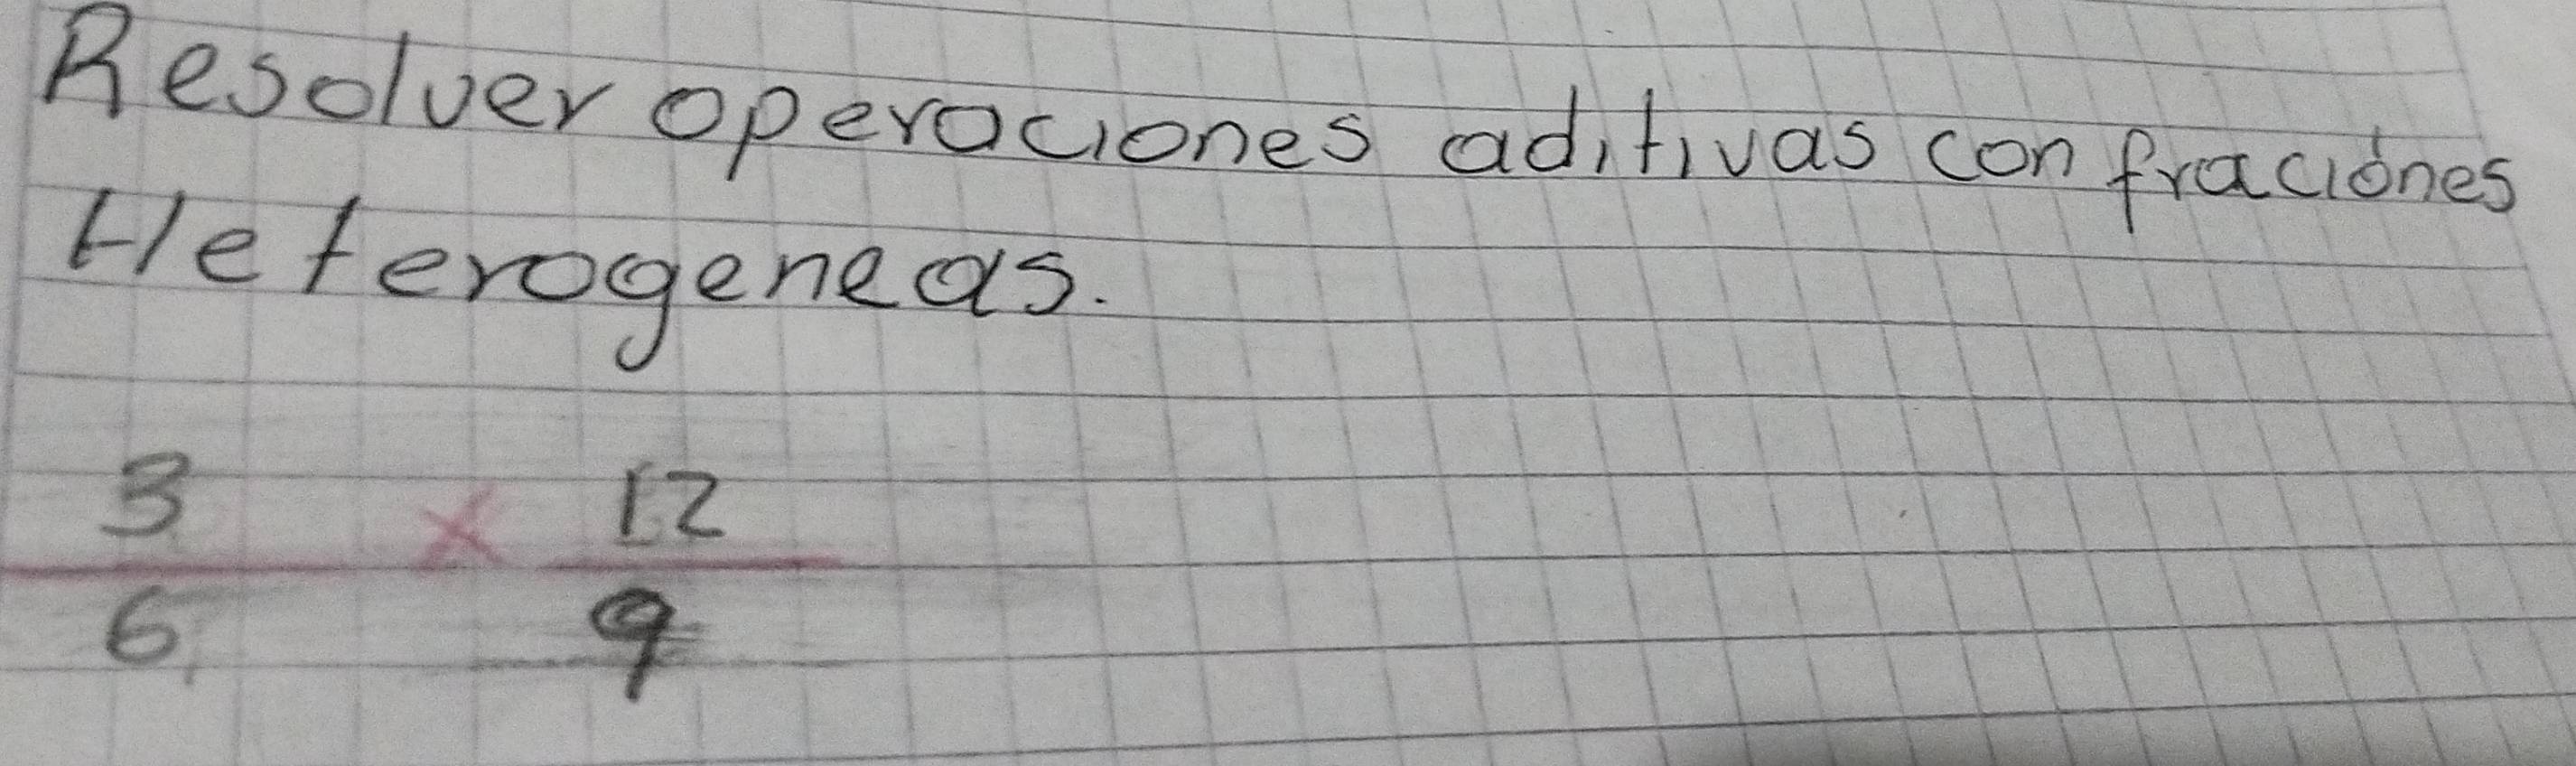 Resolver operaciones aditivas con fraciónes
Heterogeneas.
3 x 12
6 9